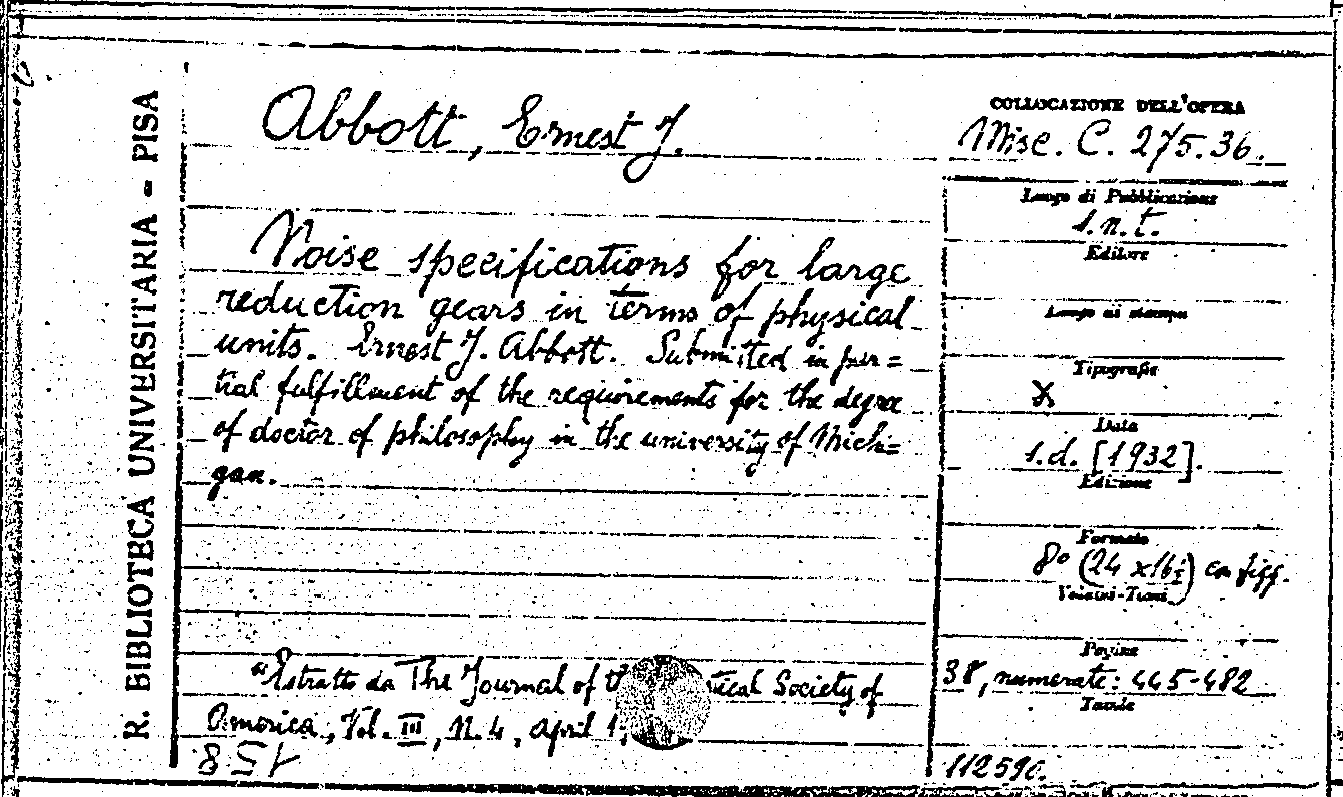 R. BIBLIOTECA UNIVERSITARIA - PISA
Abbott, Ernest J.
Noise specifications for large
reduction gears in terms of physical
units. Ernest J. Abbott. Submitted in par=
tial fulfillment of the requirements for the degree
of doctor of philosophy in the university of Michi=
gan.
"Estratto da The Journal of Society of
America, Vol. III, N. 4, April
158
COLLOCAZIONE DELL'OPERA
Misc. C. 275.36.
Luogo di Pubblicazione
s.n.t.
Editore
Luogo di stampa
Tipografia
X
Data
s.d. [1932].
Edizione
Formato
8° (24 x 16½) con figg.
Volumi-Tomi
Pagine
38, numerate: 445-482
Tavole
112590.